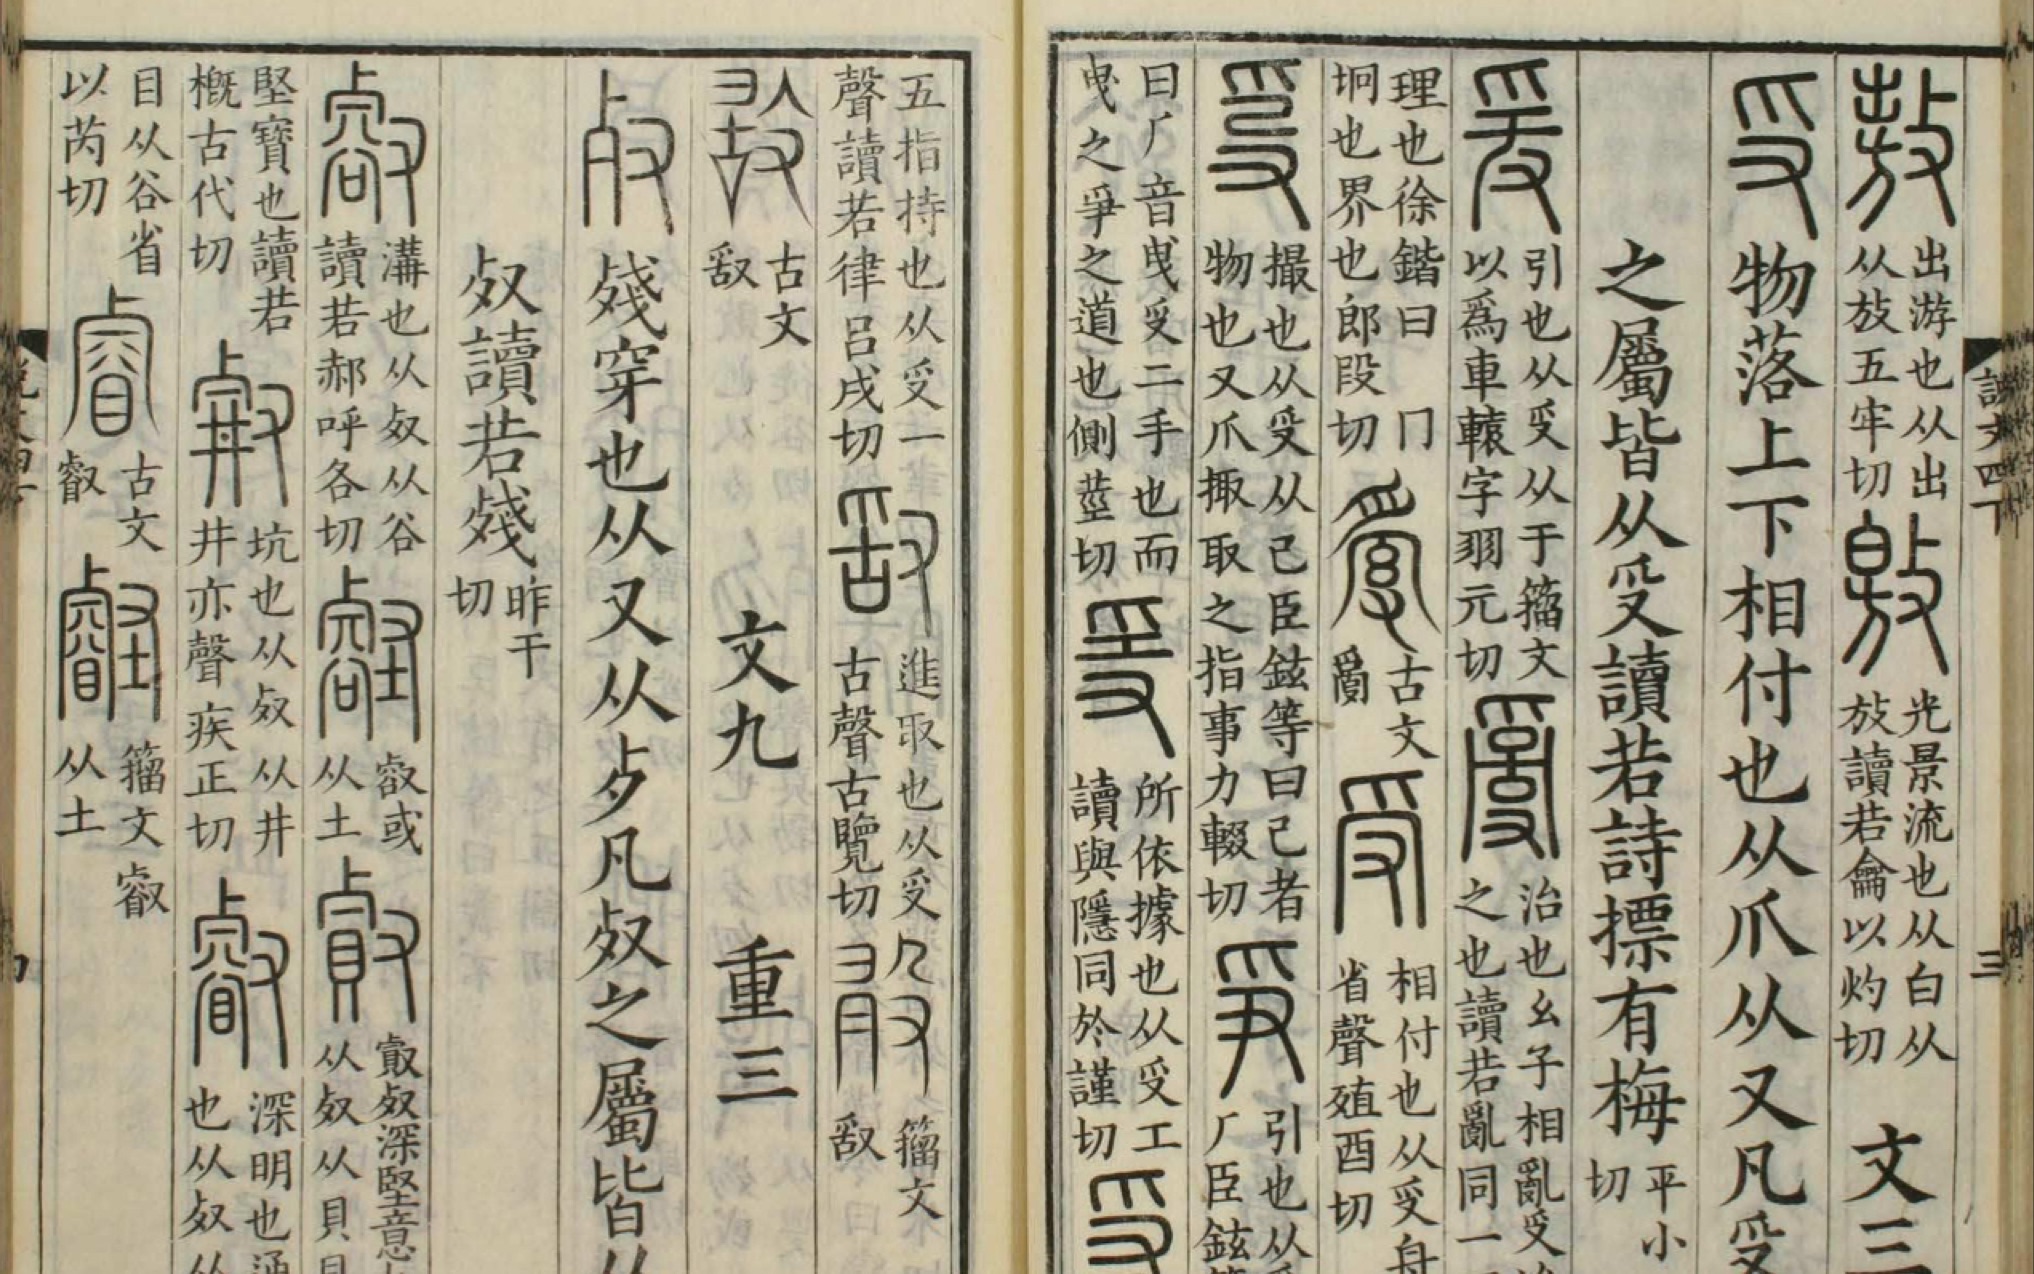 說文四下 三
敖 出游也从出
从放五牢切
敫 光景流也从白从
放讀若龠以灼切 文三
𠬪 物落上下相付也从爪从又凡𠬪
之屬皆从𠬪讀若詩摽有梅 平小
切
爰 引也从𠬪从于籒文
以爲車轅字羽元切
𤔔 治也幺子相亂𠬪治
之也讀若亂同一
理也徐鍇曰冂
坰也界也郎段切
古文
𤔔
受 相付也从𠬪舟
省聲殖酉切
𤔌 撮也从𠬪从己臣鉉等曰己者
物也又爪掫取之指事力輟切
爭 引也从𠬪
𠂆臣鉉
曰𠂆音曳𠬪二手也而
曳之爭之道也側莖切
𤔍 所依據也从𠬪工
讀與隱同於謹切
五指持也从𠬪一
聲讀若律呂戌切
𠭖 進取也从𠬪
古聲古覽切
籒文
𠭖
古文
𠭖
文九 重三
𣦼 殘穿也从又从歺凡𣦼之屬皆从
𣦼讀若殘 昨干
切
㕡 溝也从𣦼从谷
讀若郝呼各切
壑 㕡或
从土
𣦼深堅意
从𣦼从貝貝
堅寶也讀若
概古代切
坑也从𣦼从井
井亦聲疾正切
叡 深明也通
也从𣦼从
目从谷省
以芮切
睿 古文
叡
壡 籒文叡
从土